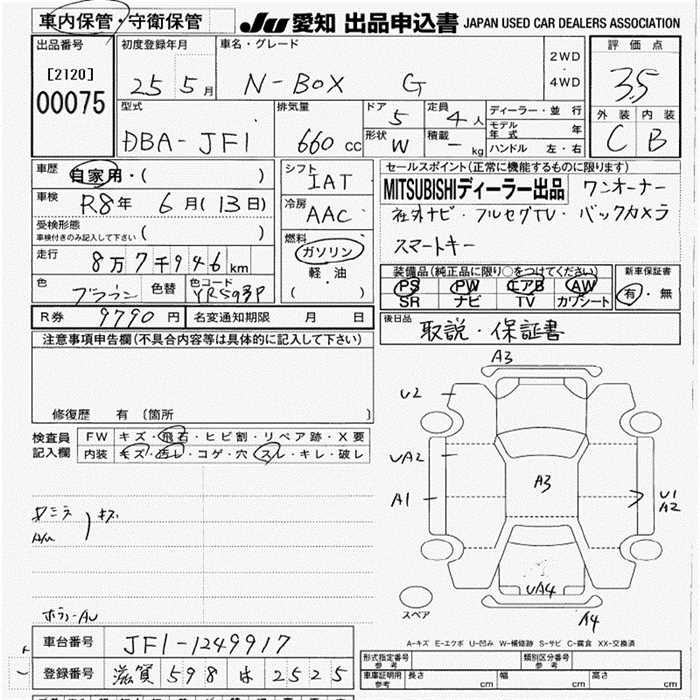 車内保管・守衛保管 JU 愛知 出品申込書 JAPAN USED CAR DEALERS ASSOCIATION
出品番号 初度登録年月 車名・グレード 2WD ・ 4WD 評価点
[2120] 00075 25 5月 N-BOX G 3.5
型式 排気量 ドア 5 定員 4人 ディーラー・並行 外装 内装
DBA-JF1 660cc 形状 W 積載 -kg モデル年式 年 C B
ハンドル 左・右
車歴 自家用・( ) シフト IAT セールスポイント(正常に機能するものに限ります)
車検 R8年 6月(13日) 冷房 AAC MITSUBISHIディーラー出品 ワンオーナー
受検形態 ( ) 社外ナビ・フルセグTV・バックカメラ
車検付きのみ記入して下さい スマートキー
走行 8万7千946km 燃料 ガソリン 軽・油 ( )
色 ブラウン 色替 色コード YR593P
装備品(純正品に限り○をつけてください) 新車保証書
PS PW エアB AW 有・無
SR ナビ TV カワシート
R券 9790円 名変通知期限 月 日 後日品 取説・保証書
注意事項申告欄(不具合内容等は具体的に記入して下さい)
修復歴 有 〔箇所 〕
検査員記入欄 FW キズ・飛石・ヒビ割・リペア跡・X要
内装 キズ・汚レ・コゲ・穴・スレ・キレ・破レ
A3
U2
UA2
A1
A3
U1
A2
UA4
A4
スペア
キズ
A-キズ E-エクボ U-凹み W-補修跡 S-サビ C-腐食 XX-交換済
車台番号 JF1-1249917
登録番号 滋賀 598 は 2525
形式指定番号 参考 類別区分番号 参考
車庫証明用 参考 長さ cm 幅 cm 高さ cm